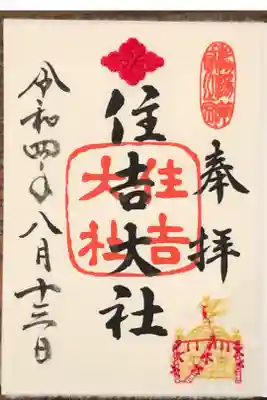 奉拝
住吉大社
住吉
大社
令和四年八月十三日